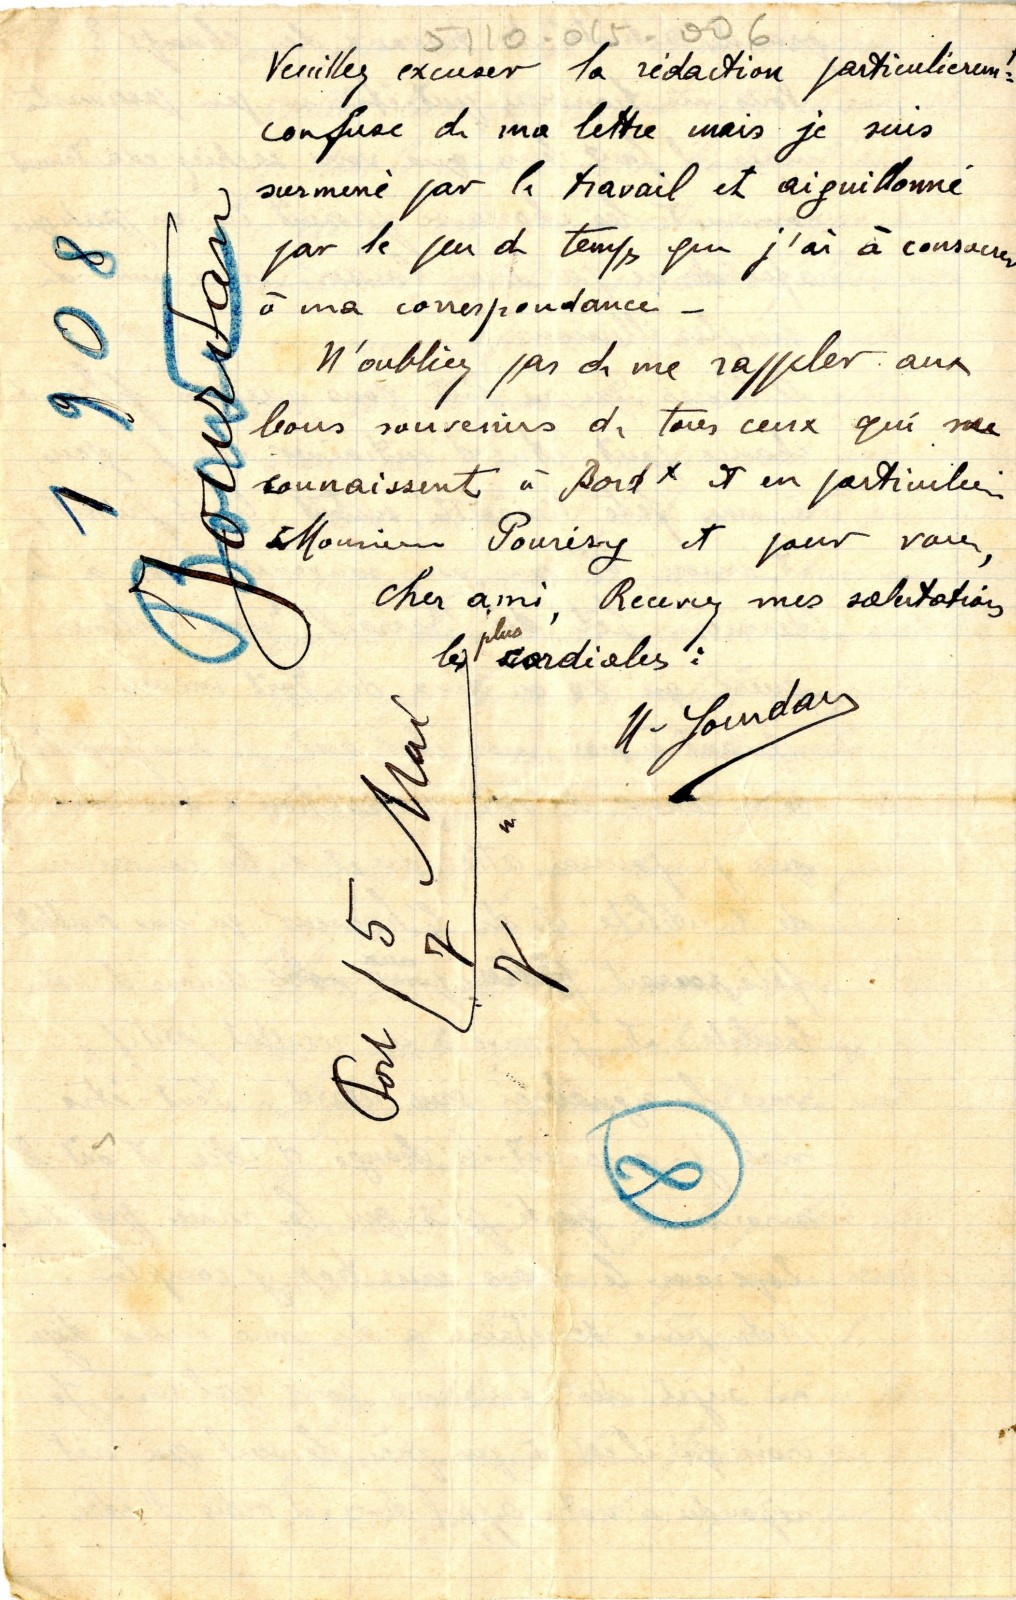 5110-015-006
Veuillez excuser la rédaction particulièremt
confuse de ma lettre mais je suis
surmené par le travail et aiguillonné
par le peu de temps que j'ai à consacrer
à ma correspondance –
N'oubliez pas de me rappeler aux
bons souvenirs de tous ceux qui me
connaissent à Bordx et en particulier
Monsieur et pour vous,
cher ami, Recevez mes salutations
les plus cordiales :
Jourdan
1908
5 Mai
7
"
7
8